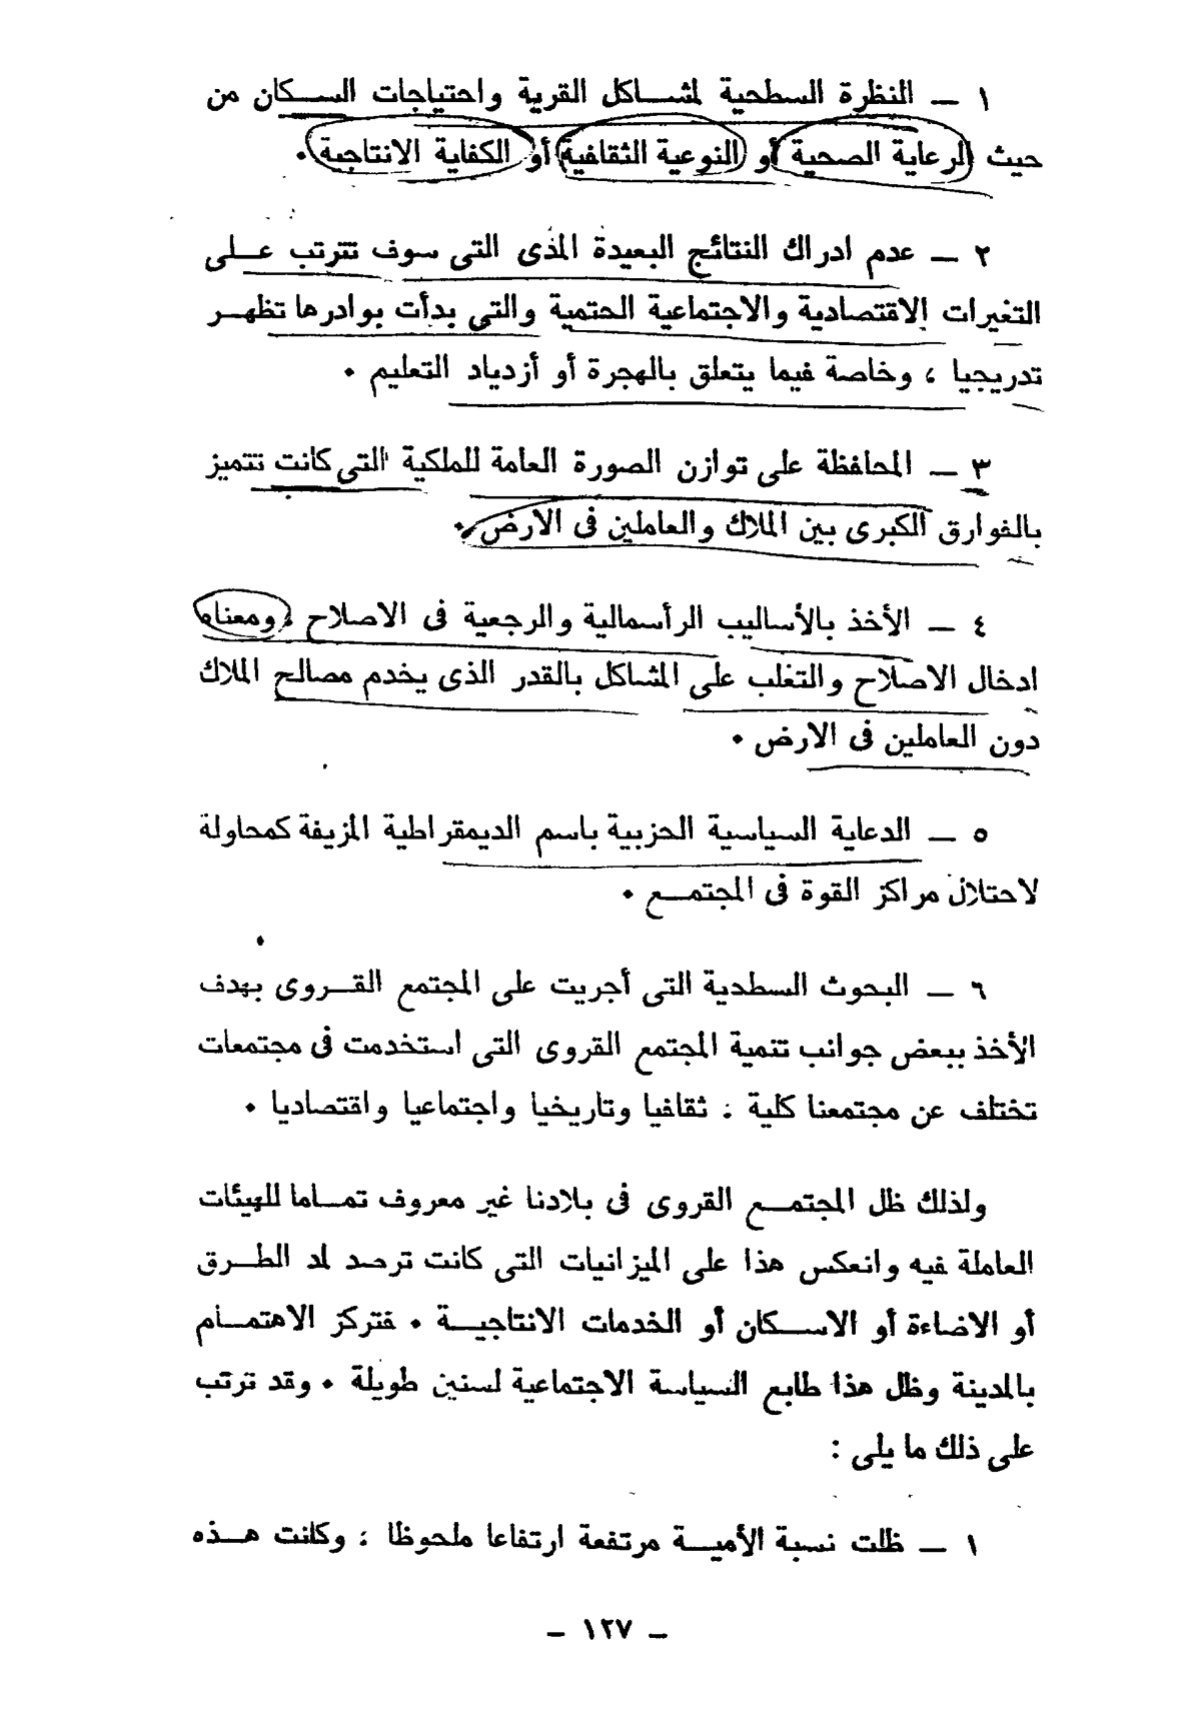 ١ ــ النظرة السطحية لمشاكل القرية واحتياجات السكان من
حيث الرعاية الصحية أو النوعية الثقافية أو الكفاية الانتاجية ٠
٢ ــ عدم ادراك النتائج البعيدة المدى التى سوف تترتب على
التغيرات الاقتصادية والاجتماعية الحتمية والتي بدأت بوادرها تظهر
تدريجيا ، وخاصة فيما يتعلق بالهجرة أو أزدياد التعليم ٠
٣ ــ المحافظة على توازن الصورة العامة للملكية التى كانت تتميز
بالفوارق الكبرى بين الملاك والعاملين فى الارض ٠
٤ ــ الأخذ بالأساليب الرأسمالية والرجعية فى الاصلاح ، ومعناه
ادخال الاصلاح والتغلب على المشاكل بالقدر الذى يخدم مصالح الملاك
دون العاملين فى الارض ٠
٥ ــ الدعاية السياسية الحزبية باسم الديمقراطية المزيفة كمحاولة
لاحتلال مراكز القوة فى المجتمع ٠
٦ ــ البحوث السطحية التى أجريت على المجتمع القروى بهدف
الأخذ ببعض جوانب تنمية المجتمع القروى التى استخدمت فى مجتمعات
تختلف عن مجتمعنا كلية : ثقافيا وتاريخيا واجتماعيا واقتصاديا ٠
ولذلك ظل المجتمع القروى فى بلادنا غير معروف تماما للهيئات
العاملة فيه وانعكس هذا على الميزانيات التى كانت ترصد لمد الطرق
أو الاضاءة أو الاسكان أو الخدمات الانتاجية ٠ فتركز الاهتمام
بالمدينة وظل هذا طابع السياسة الاجتماعية لسنين طويلة ٠ وقد ترتب
على ذلك ما يلى :
١ ــ ظلت نسبة الأمية مرتفعة ارتفاعا ملحوظا ؛ وكانت هذه
ــ ١٢٧ ــ